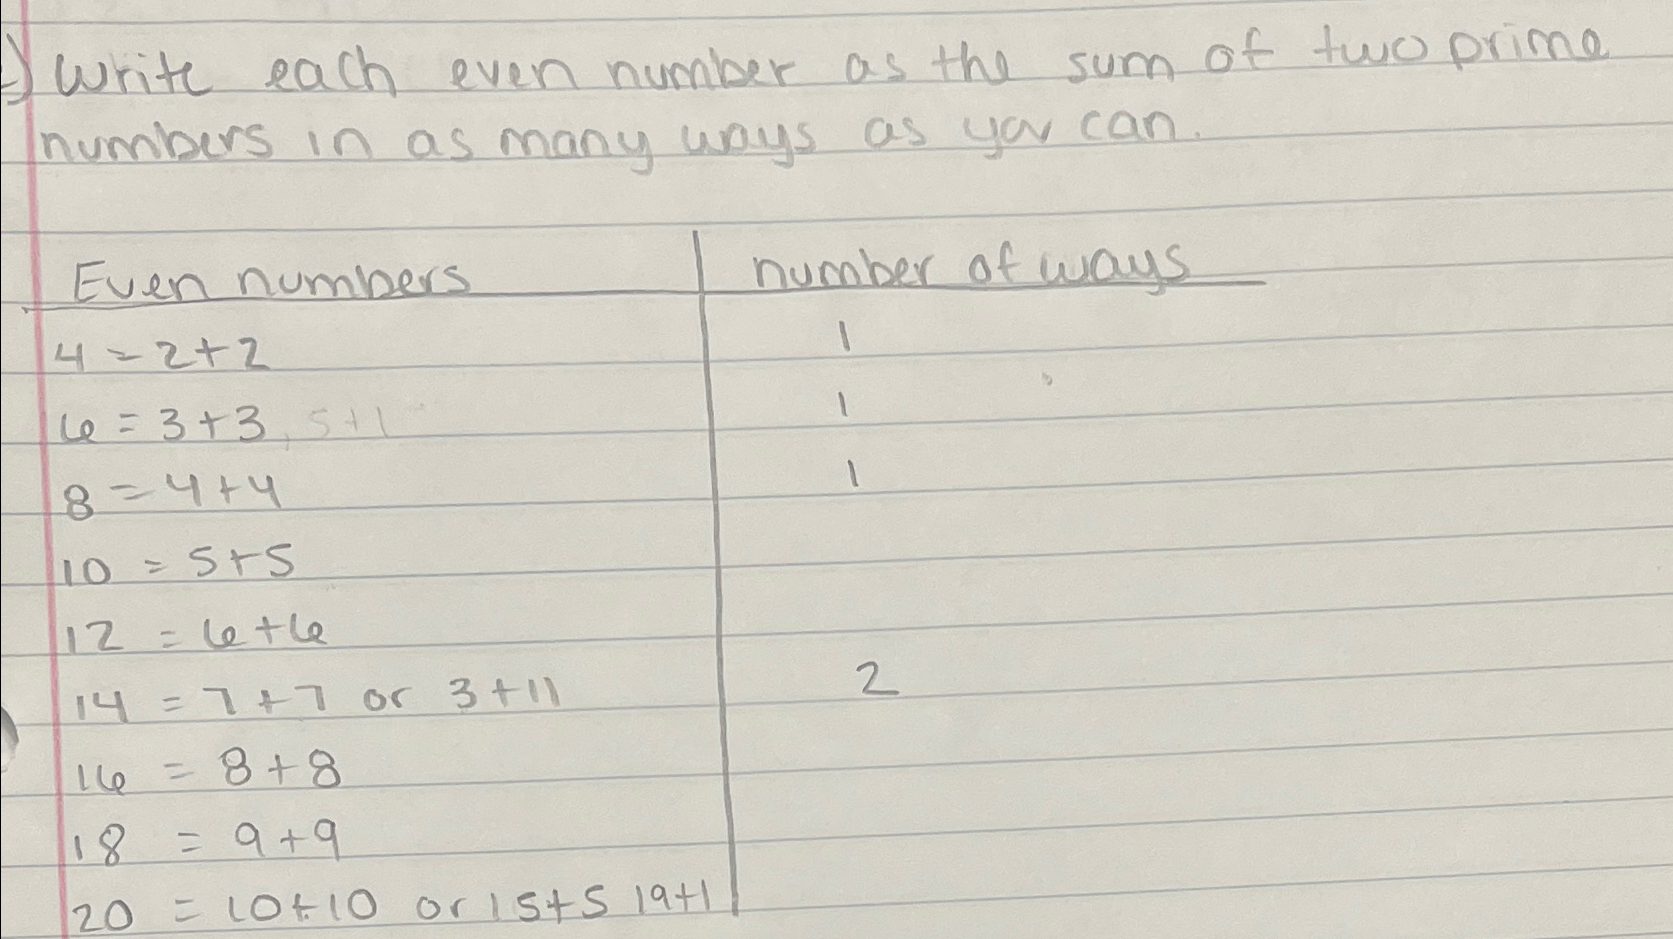 Write each even number as the sum of two prime
numbers in as many ways as you can.
Even numbers number of ways
4 = 2+2 1
6 = 3+3, 5+1 1
8 = 4+4 1
10 = 5+5
12 = 6+6
14 = 7+7 or 3+11 2
16 = 8+8
18 = 9+9
20 = 10+10 or 15+5 19+1